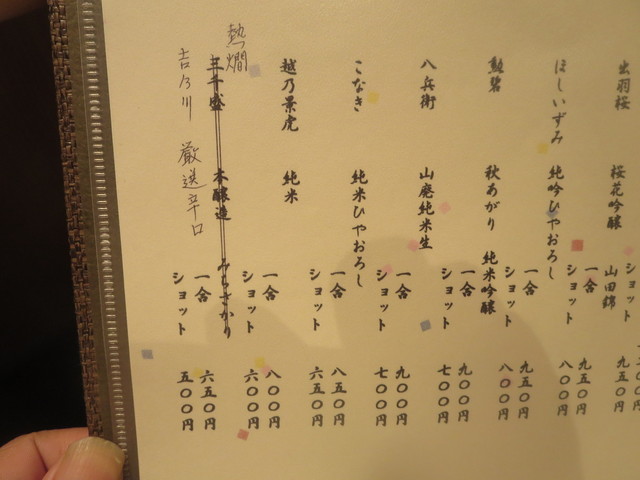 出羽桜 桜花吟醸 山田錦
一合 九五〇円
ショット
ほしいずみ 純吟ひやおろし
一合 九五〇円
ショット 八〇〇円
勲碧 秋あがり 純米吟醸
一合 九五〇円
ショット 八〇〇円
八兵衛 山廃純米生
一合 九〇〇円
ショット 七〇〇円
こなき 純米ひやおろし
一合 九〇〇円
ショット 七〇〇円
越乃景虎 純米
一合 八五〇円
ショット 六五〇円
熱燗
三千盛 本醸造 みちさかり
一合 八〇〇円
ショット 六〇〇円
吉乃川 厳選辛口
一合 六五〇円
ショット 五〇〇円